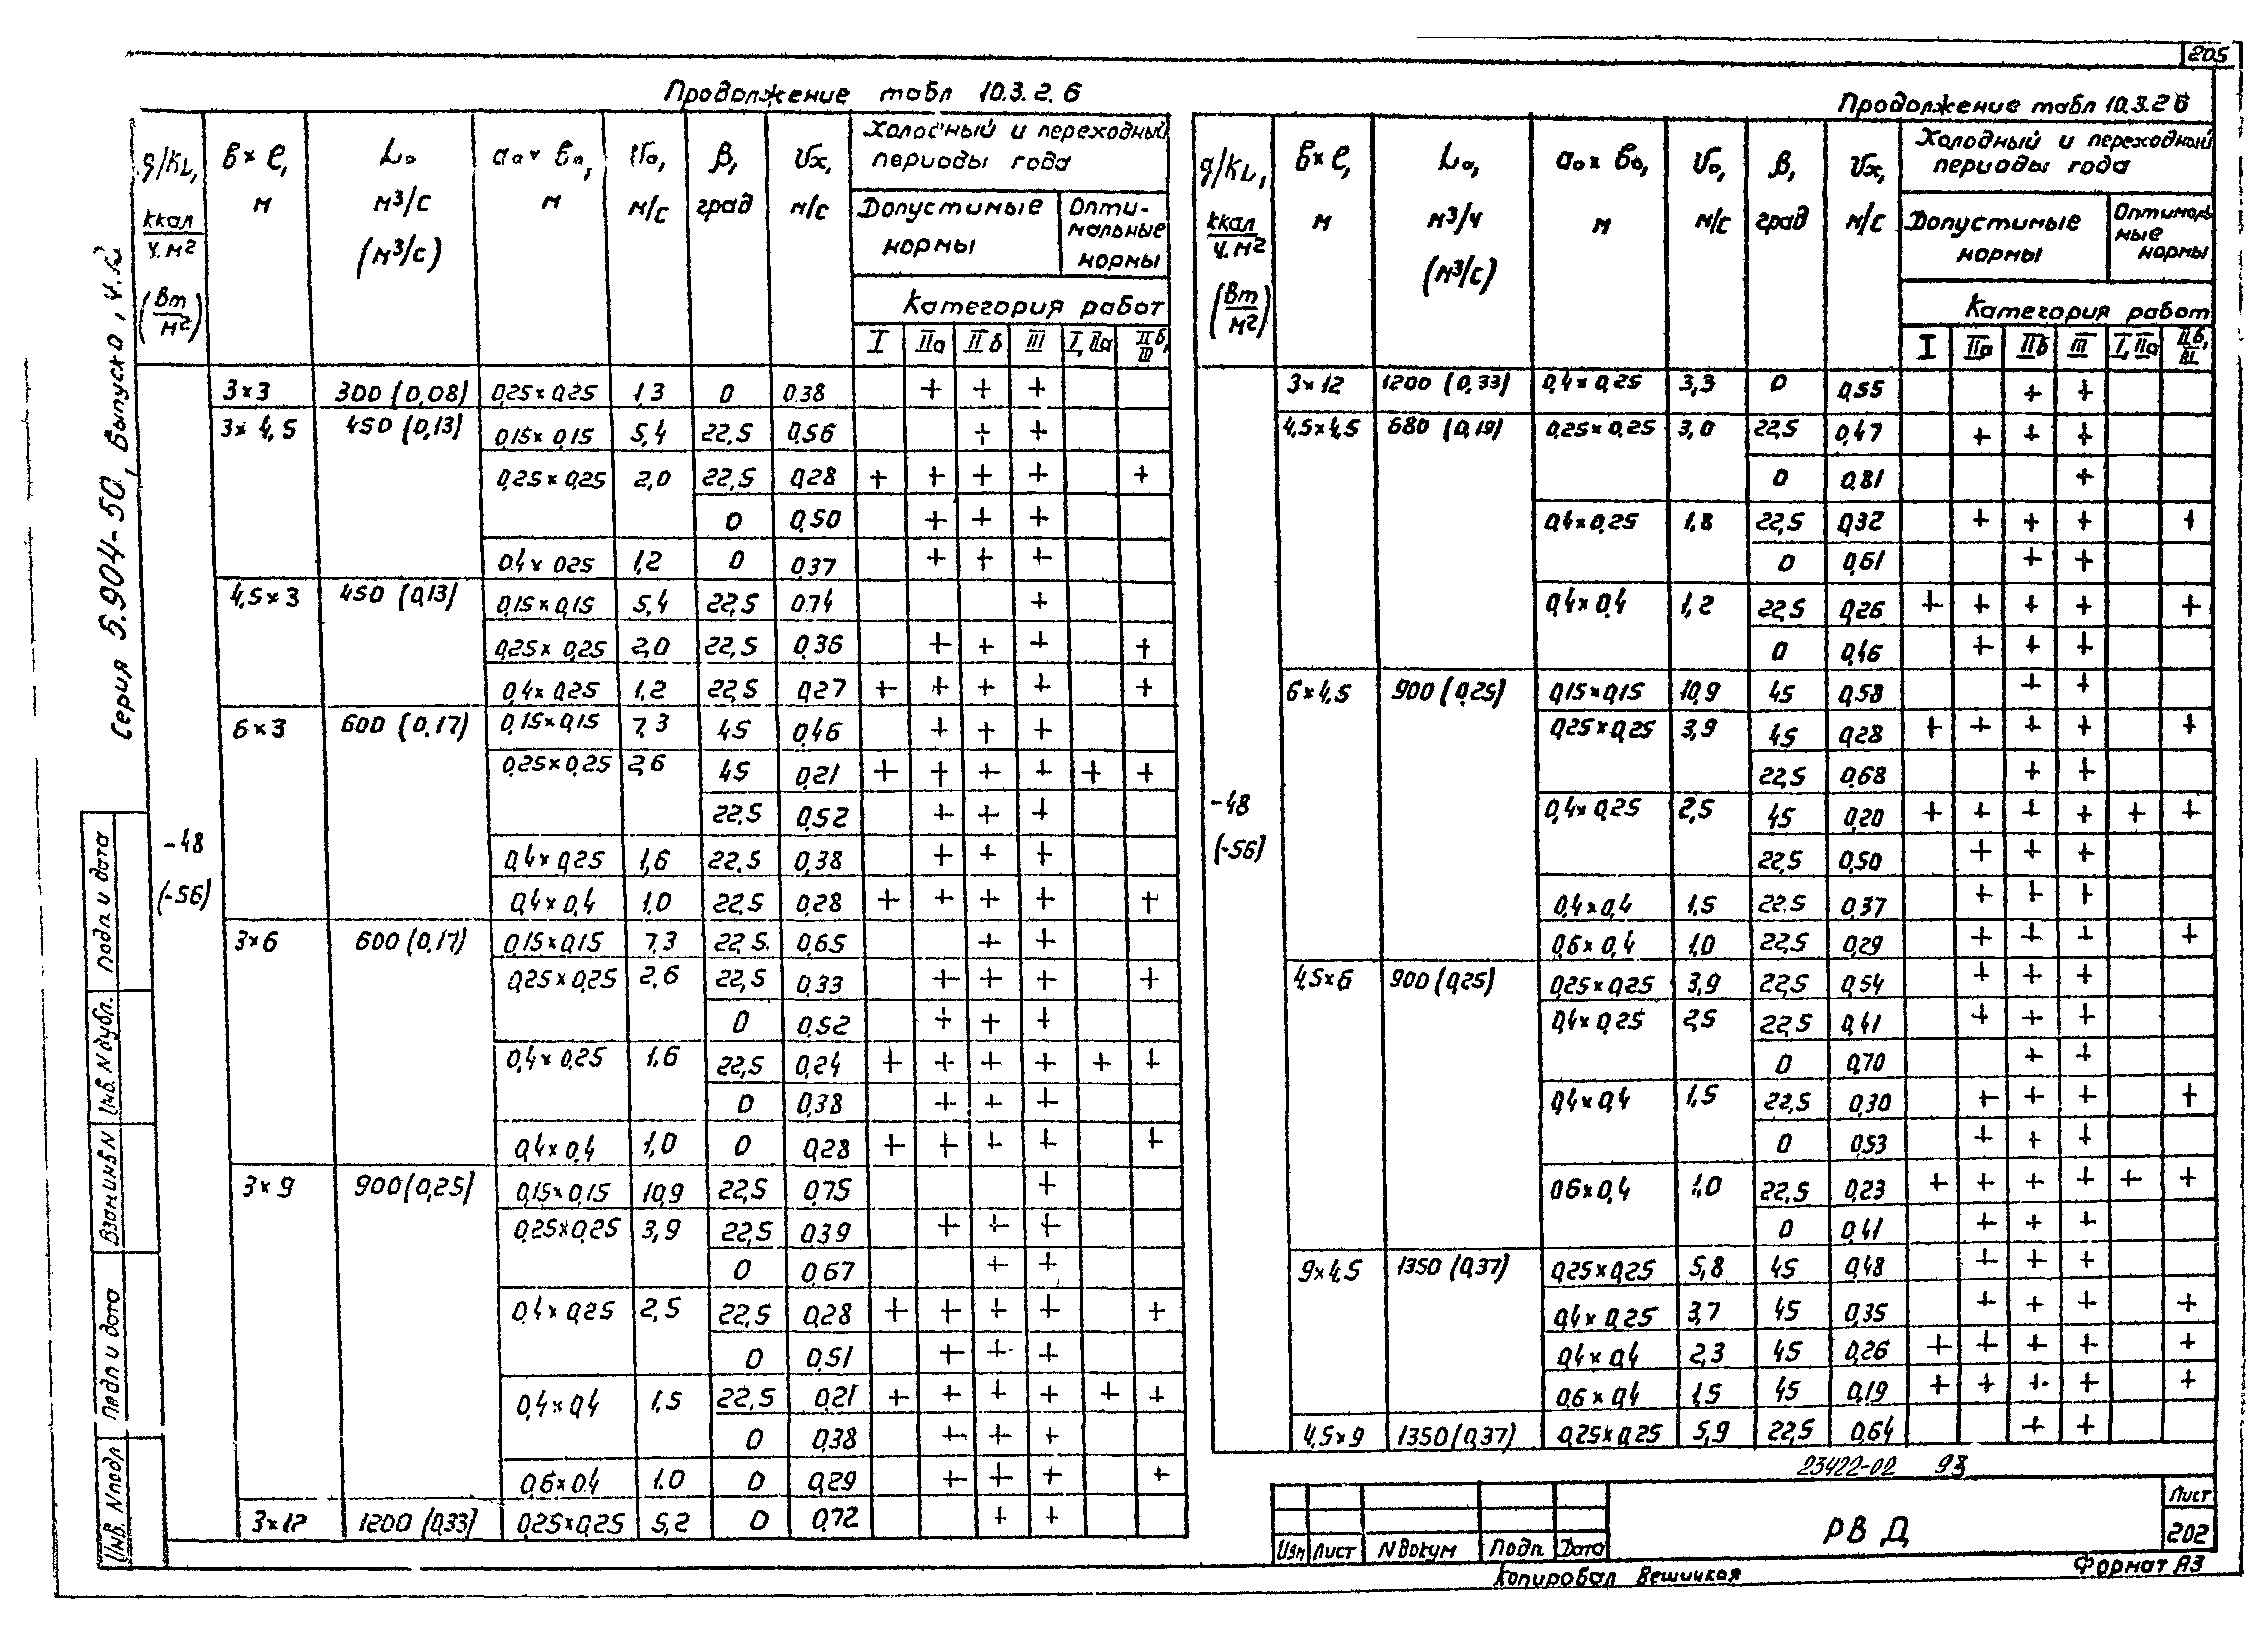 205
Продолжение табл 10.3.2.6
g/KL, в × ℓ, Lо aо × bо, Vо, β, Vx, Холодный и переходный
периоды года
ккал/ч.м² м м³/с м м/с град м/с Допустимые нормы Оптимальные нормы
(Вт/м²) (м³/с) Категория работ
I IIа IIб III I, IIа IIб, III
3×3 300 (0,08) 0,25×0,25 1,3 0 0.38 + + +
3×4,5 450 (0,13) 0,15×0,15 5,4 22,5 0,56 + +
0,25×0,25 2,0 22,5 0,28 + + + + +
0 0,50 + + +
0.4×025 1,2 0 0,37 + + +
4,5×3 450 (0,13) 0,15×0,15 5,4 22,5 0.74 +
0,25×0,25 2,0 22,5 0,36 + + + +
0,4×0,25 1,2 22,5 0,27 + + + + +
6×3 600 (0,17) 0,15×0,15 7,3 45 0,46 + + +
0,25×0,25 2,6 45 0,21 + + + + + +
22.5 0,52 + + +
-48 (-56)
0,4×0,25 1,6 22,5 0,38 + + +
0,4×0,4 1,0 22,5 0,28 + + + + +
3×6 600 (0,17) 0,15×0,15 7,3 22,5. 0,65 + +
0,25×0,25 2,6 22,5 0,33 + + + +
0 0,52 + + +
0,4×0,25 1,6 22,5 0,24 + + + + + +
0 0,38 + + +
0,4×0,4 1,0 0 0,28 + + + + +
3×9 900 (0,25) 0,15×0,15 10,9 22,5 0,75 +
0,25×0,25 3,9 22,5 039 + + +
0 0,67 + +
0,4×0,25 2,5 22,5 0,28 + + + + +
0 0,51 + + +
0,4×0,4 1,5 22,5 0,21 + + + + + +
0 0,38 + + +
0,6×0.4 1.0 0 0,29 + + + +
3×12 1200 (0,33) 0,25×0,25 5,2 0 0,72 + +
Продолжение табл 10.3.2 6
g/KL, в × ℓ, Lо, aо × bо, Vо, β, Vx, Холодный и переходный
периоды года
ккал/ч.м² м м³/ч м м/с град м/с Допустимые нормы Оптимальные нормы
(Вт/м²) (м³/с) Категория работ
I IIа IIб III I, IIа IIб, III
3×12 1200 (0,33) 0,4×0,25 3,3 0 0,55 + +
4,5×4,5 680 (0,19) 0,25×0,25 3,0 22,5 0,47 + + +
0 0,81 +
0,4×0,25 1,8 22,5 0,32 + + + +
0 0,61 + +
0,4×0,4 1,2 22,5 0,26 + + + + +
0 0,46 + + +
6×4,5 900 (0,25) 0,15×0,15 10,9 45 0,58 + +
0,25×0,25 3,9 45 0,28 + + + + +
22,5 0,68 + +
-48 (-56)
0,4×0,25 2,5 45 0,20 + + + + + +
22,5 0,50 + + +
0,4×0,4 1,5 22.5 0,37 + + +
0,6×0,4 1,0 22,5 0,29 + + + +
4,5×6 900 (0,25) 0,25×0,25 3,9 22,5 0,54 + + +
0,4×0,25 2,5 22,5 0,41 + + +
0 0,70 + +
0,4×0,4 1,5 22,5 0,30 + + + +
0 0,53 + + +
0.6×0,4 1,0 22,5 0,23 + + + + + +
0 0,41 + + +
9×4,5 1350 (0,37) 0,25×0,25 5,8 45 0,48 + + +
0,4×0,25 3,7 45 0,35 + + + +
0,4×0,4 2,3 45 0,26 + + + + +
0,6×0,4 1,5 45 0,19 + + + + +
4,5×9 1350 (0,37) 0,25×0,25 5,9 22,5 0,64 + +
23422-02 93
Изм Лист N докум Подп. Дата
РВ Д
Лист
202
Копировал Вешицкая
Формат А3
Серия 5.904-50, Выпуск 0, ч.2
Подп. и дата
Инв. N дубл.
Взам инв N
Подп и дата
Инв. N подл